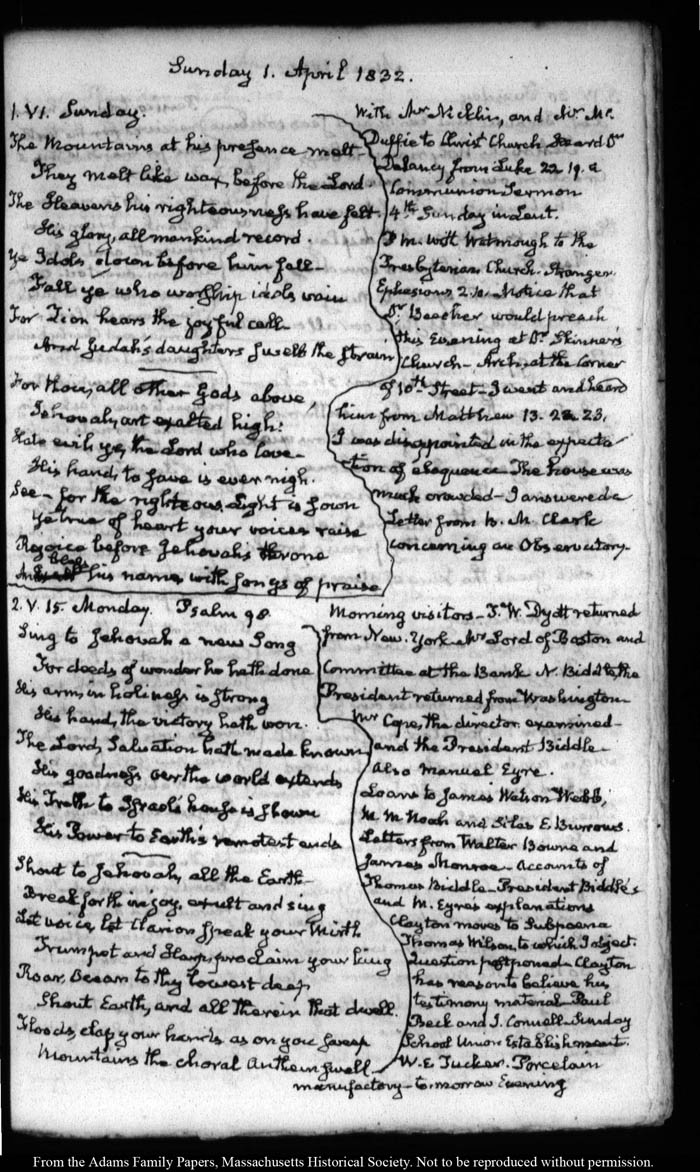 Sunday 1. April 1832.
1. VI. Sunday.
The Mountains at his presence melt
They melt like wax, before the Lord.
The Heavens his righteousness have felt
His glory, all mankind record.
Ye Idols down before him fall
Fall ye who worship idols vain
For Zion hears the joyful call
And Judah's daughters swell the strain
For thou, all other Gods above,
Jehovah, art exalted high:
Hate evil, ye, the Lord who love
His hand, to save is ever nigh.
See – for the righteous, Light is sown
Ye true of heart your voices raise
Rejoice before Jehovah's throne
bless his name, with songs of praise
With Mr Nicklin, and Mr Mc.
Duffie to Christ Church, Heard Dr
Delancy from Luke 22. 19. a
Communion Sermon
4th Sunday in Lent.
P.M. with Watmough to the
Presbyterian Church. Stranger.
Ephesians 2. Notice that
Dr Beecher would preach
this Evening at Dr Skinner's
Church – Arch, at the corner
of 10th Street – I went and heard
him from Matthew 13. 22. 23.
I was disappointed in the expecta-
tion of eloquence – The house was
much crowded – I answered a
Letter from M. Clark
concerning an Observatory.
2. V. 15. Monday. Psalm 98
Sing to Jehovah a new Song
For deeds of wonder he hath done
His arm, in holiness is strong
His hand, the victory hath won.
The Lord, Salvation hath made known
His goodness over the world extends
His Truth to Israel's house is shown
His Power to Earth's remotest ends
Shout to Jehovah, all the Earth
Break forth in joy, exult and sing
Let voice, let Clarion speak your Mirth
Trumpet and Harp, proclaim your king
Roar, Ocean to thy lowest deep
Shout Earth, and all therein that dwell.
Floods, clap your hands as on you sweep
Mountains the choral Anthem swell
Morning visitors – J. W. Dyott returned
from New-York. Mr Lord of Boston and
Committee at the Bank N. Biddle the
President returned from Washington
Mr Cope, the director examined –
and the President Biddle
Also Manuel Eyre.
Loans to James Watson Webb,
M. M. Noah and Silas E. Burrows.
Letters from Walter Bowne and
James Monroe – Accounts of
Thomas Biddle – President Biddle's
and M. Eyre's explanations
Clayton moves to Subpoena
Thomas Wilson, to which I object.
Question postponed – Clayton
has reason to believe his
testimony material – Paul
Beck and J. Connell – Sunday
School Union Establishment.
W. E. Tucker. Porcelain
manufactory – to-morrow Evening
From the Adams Family Papers, Massachusetts Historical Society. Not to be reproduced without permission.